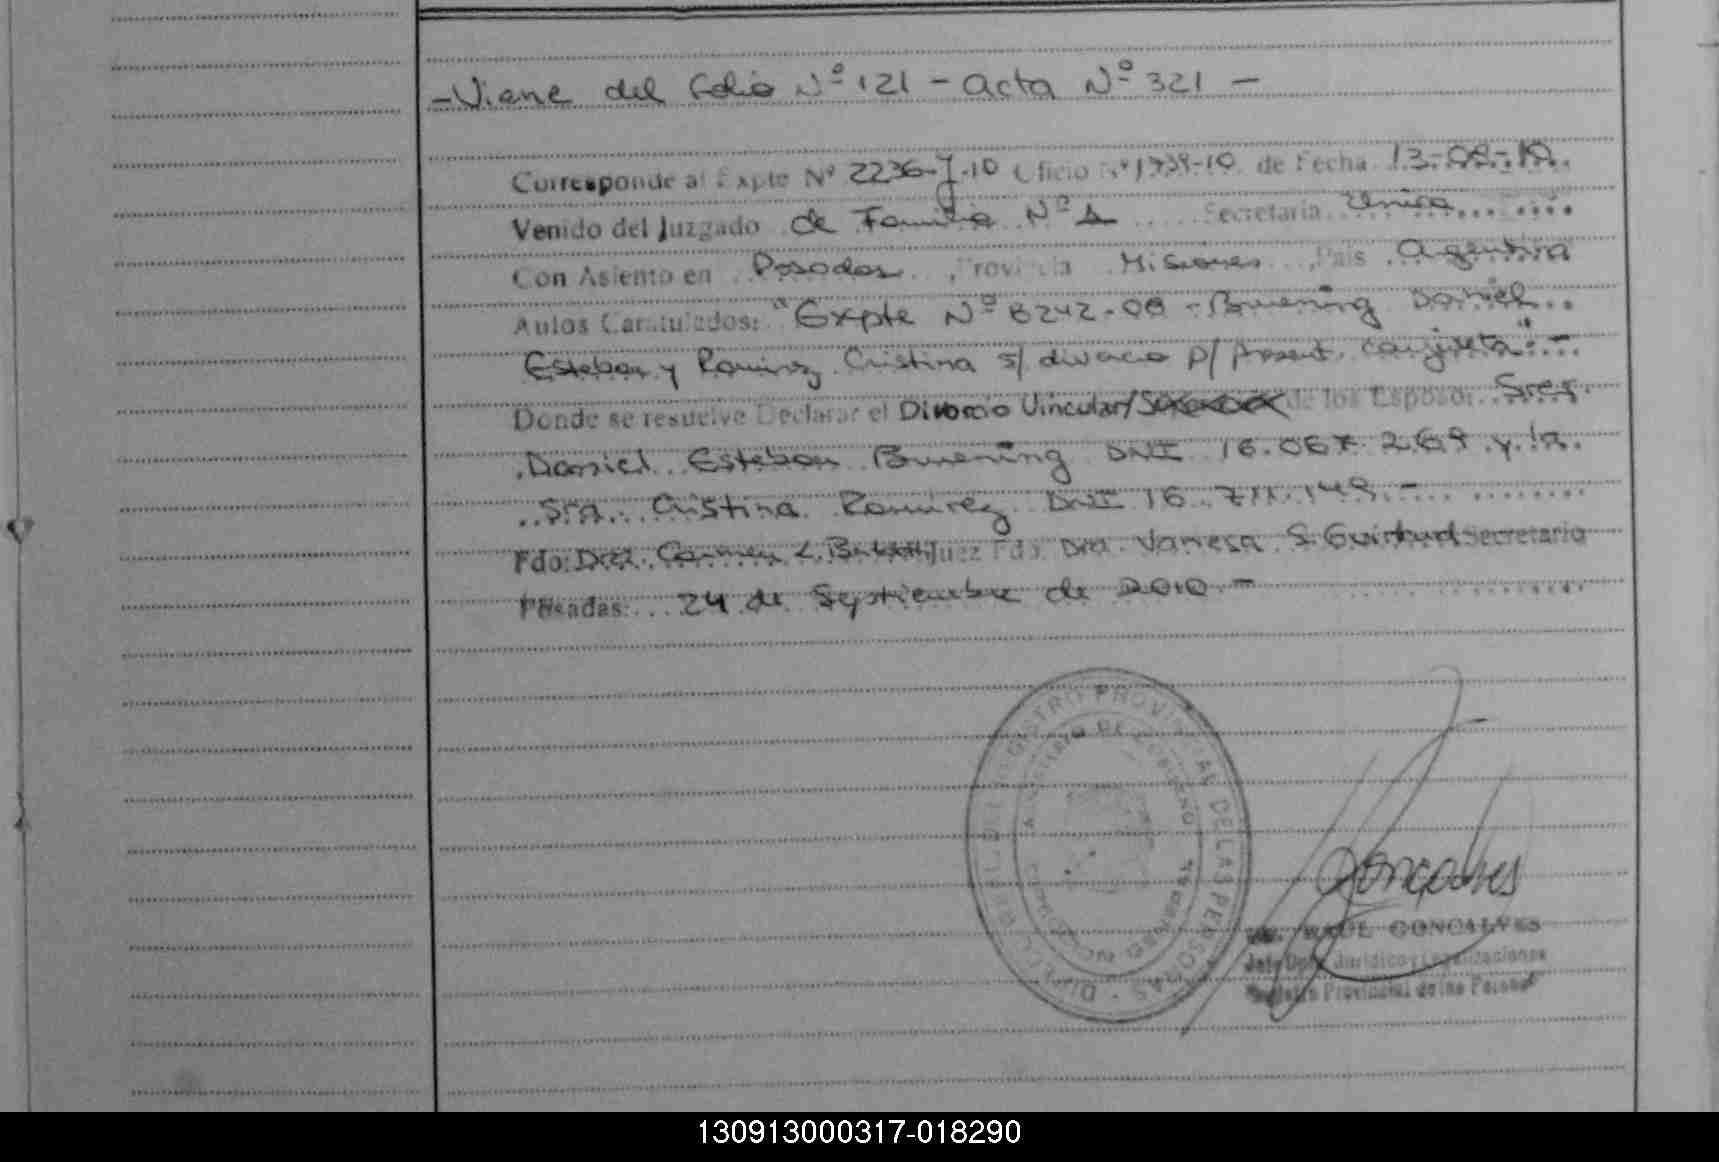 -Viene del Folio Nº 121 - acta Nº 321 -
Corresponde al Expte Nº 2236-J-10 Oficio Nº 1739-10 de Fecha 13-08-10.
Venido del Juzgado de Familia Nº 1 Secretaría Unica
Con Asiento en Posadas, Provincia Misiones, País Argentina
Autos Caratulados: "Expte Nº 8242-08 - Bruening Daniel
Esteban y Ramirez Cristina s/ divorcio p/ present. conjunta".-
Donde se resuelve Declarar el Divorcio Vincular/ de los Esposos Sres.
Daniel Esteban Bruening DNI 16.067.269 y la
Sra. Cristina Ramirez DNI 16.711.149.-
Fdo: Dra. Carmen L. Juez Fdo. Dra. Vanesa S. Secretario
Posadas: 24 de Septiembre de 2010 -
REGISTRO PROVINCIAL DE LAS PERSONAS
MINISTERIO DE GOBIERNO
Goncalves
RAUL GONCALVES
Jefe Dpto. Jurídico y Legalizaciones
Registro Provincial de las Personas
130913000317-018290